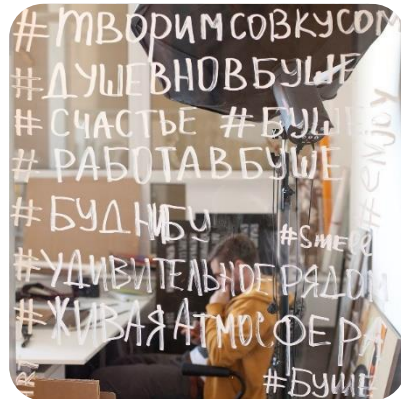 #ТВОРИМСОВКУСОМ
#ДУШЕВНОВБУШЕ
#СЧАСТЬЕ #БУШЕ
#РАБОТАВБУШЕ
#БУДНИБУ
#УДИВИТЕЛЬНОЕРЯДОМ
#ЖИВАЯАТМОСФЕРА
#БУШЕ
#enjoy